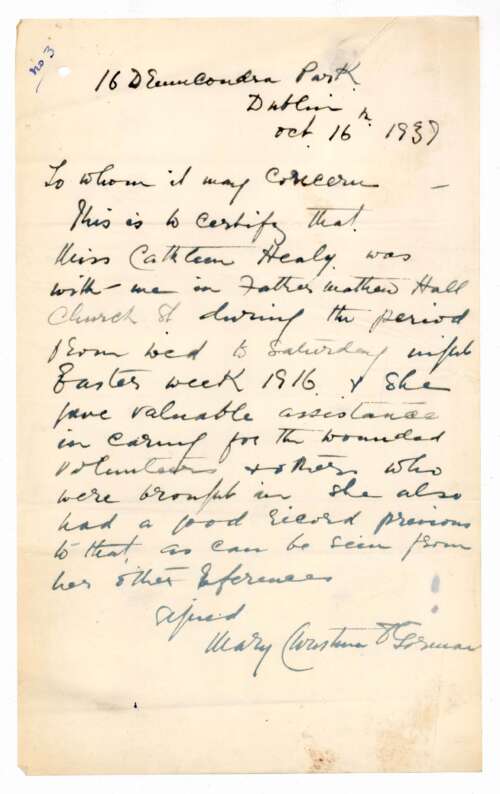 no 3
16 Drumcondra Park.
Dublin
Oct. 16th 1937
To whom it may concern –
This is to certify that
Miss Cathleen Healy was
with me in Father Mathew Hall
Church St during the period
from wed to Saturday night
Easter week 1916 & she
gave valuable assistance
in caring for the wounded
volunteers & others who
were brought in she also
had a good record previous
to that, as can be seen from
her other references
Signed
Mary Christina O'Gorman